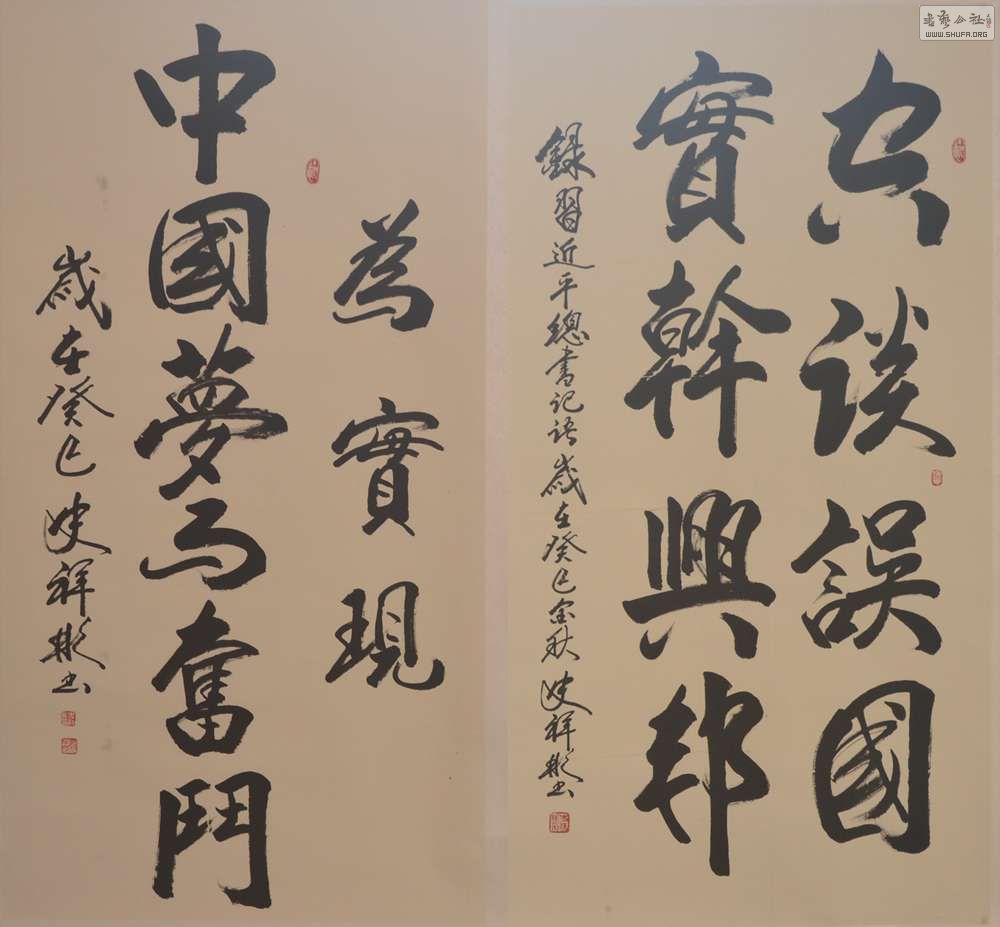 書藝公社
WWW.SHUFA.ORG
空談誤國
實幹興邦
録習近平總書記語歲在癸巳金秋祥彬书
為實現
中國夢而奮鬥
歲在癸巳祥彬书